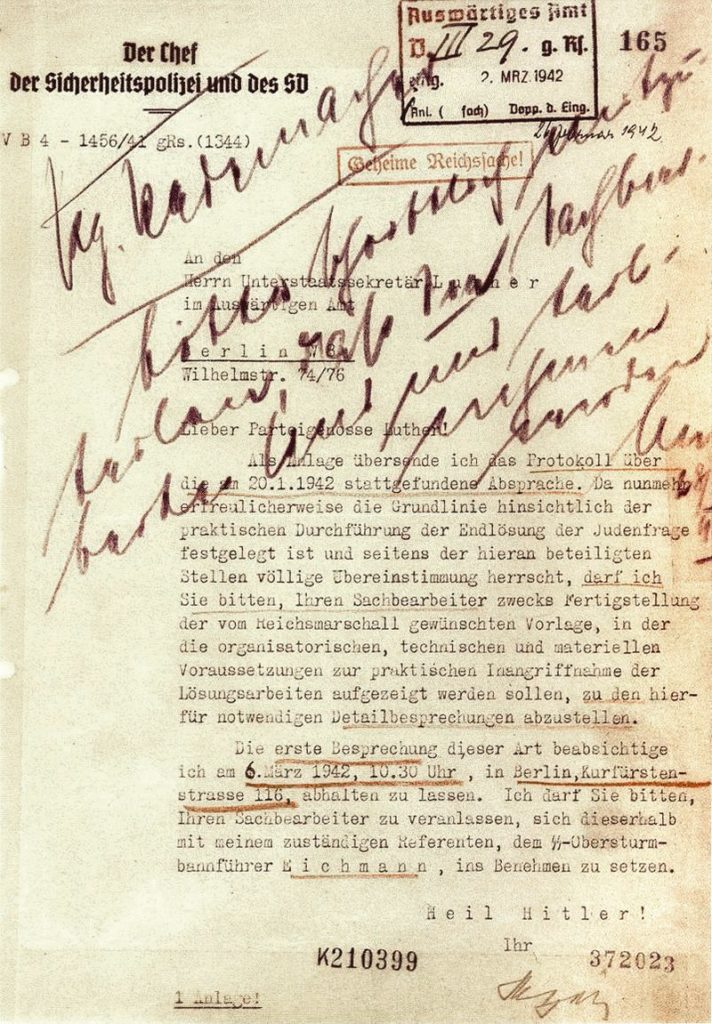 Der Chef
der Sicherheitspolizei und des SD
V B 4 - 1456/41 gRs.(1344)
Auswärtiges Amt
D. III 29. g. Rs.
eing. 2. MRZ. 1942
Anl. ( fach) Dopp. d. Eing.
165
1942
Geheime Reichssache!
An den
Herrn Unterstaatssekretär L u t h e r
im Auswärtigen Amt
B e r l i n W 8
Wilhelmstr. 74/76
Lieber Parteigenosse Luther!
Als Anlage übersende ich das Protokoll über
die am 20.1.1942 stattgefundene Absprache. Da nunmehr
erfreulicherweise die Grundlinie hinsichtlich der
praktischen Durchführung der Endlösung der Judenfrage
festgelegt ist und seitens der hieran beteiligten
Stellen völlige Übereinstimmung herrscht, darf ich
Sie bitten, Ihren Sachbearbeiter zwecks Fertigstellung
der vom Reichsmarschall gewünschten Vorlage, in der
die organisatorischen, technischen und materiellen
Voraussetzungen zur praktischen Inangriffnahme der
Lösungsarbeiten aufgezeigt werden sollen, zu den hier-
für notwendigen Detailbesprechungen abzustellen.
Die erste Besprechung dieser Art beabsichtige
ich am 6.März 1942, 10.30 Uhr , in Berlin,Kurfürsten-
strasse 116, abhalten zu lassen. Ich darf Sie bitten,
Ihren Sachbearbeiter zu veranlassen, sich dieserhalb
mit meinem zuständigen Referenten, dem ᛋᛋ-Obersturm-
bannführer E i c h m a n n , ins Benehmen zu setzen.
H e i l H i t l e r !
Ihr
K210399
372023
1 Anlage!